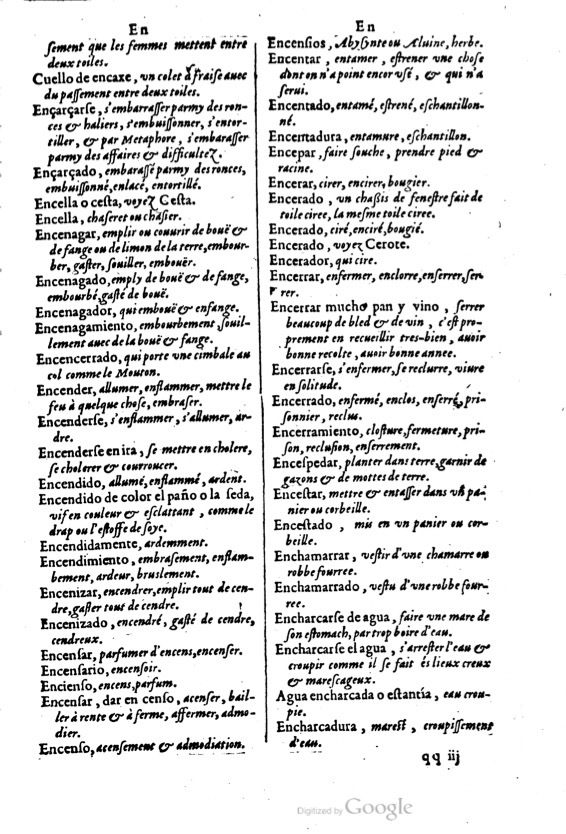 En
ſement que les femmes mettent entre
deux toiles.
Cuello de encaxe, vn colet à fraiſe auec
du paſſement entre deux toiles.
Ençarçarſe, s'embarraſſer parmy des ron-
ces & haliers, s'embuiſſonner, s'entor-
tiller, & par Metaphore, s'embaraſſer
parmy des affaires & difficultez.
Ençarçado, embaraſsé parmy des ronces,
embuiſſonné, enlacé, entortillé.
Encella o ceſta, voyez Ceſta.
Encella, chaſeret ou chaſier.
Encenagar, emplir ou couurir de bouë &
de fange ou de limon de la terre, embour-
ber, gaſter, ſouiller, embouër.
Encenagado, emply de bouë & de fange,
embourbé, gaſté de bouë.
Encenagador, qui embouë & enfange.
Encenagamiento, embourbement, ſouil-
lement auec de la bouë & fange.
Encencerrado, qui porte vne cimbale au
col comme le Mouton.
Encender, allumer, enflammer, mettre le
feu à quelque choſe, embraſer.
Encenderſe, s'enflammer, s'allumer, ar-
dre.
Encenderſe en ira, ſe mettre en cholere,
ſe cholerer & courroucer.
Encendido, allumé, enflammé, ardent.
Encendido de color el paño o la ſeda,
vif en couleur & eſclattant, comme le
drap ou l'eſtoffe de ſoye.
Encendidamente, ardemment.
Encendimiento, embraſement, enflam-
bement, ardeur, bruslement.
Encenizar, encendrer, emplir tout de cen-
dre, gaſter tout de cendre.
Encenizado, encendré, gaſté de cendre,
cendreux.
Encenſar, parfumer d'encens, encenſer.
Encenſario, encenſoir.
Encienſo, encens, parfum.
Encenſar, dar en cenſo, acenſer, bail-
ler à rente & à ferme, affermer, admo-
dier.
Encenſo, acenſement & admodiation.
En
Encenſios, Abyſynte ou Aluine, herbe.
Encentar, entamer, eſtrener vne choſe
dont on n'a point encor vſé, & qui n'a
ſerui.
Encentado, entamé, eſtrené, eſchantillon-
né.
Encentadura, entamure, eſchantillon.
Encepar, faire ſouche, prendre pied &
racine.
Encerar, cirer, encirer, bougier.
Encerado, vn chaßis de feneſtre fait de
toile ciree, la meſme toile ciree.
Encerado, ciré, enciré, bougié.
Encerado, voyez Cerote.
Encerador, qui cire.
Encerrar, enfermer, enclorre, enſerrer, ſer-
rer.
Encerrar mucho pan y vino, ſerrer
beaucoup de bled & de vin, c'eſt pro-
prement en recueillir tres-bien, auoir
bonne recolte, auoir bonne annee.
Encerrarſe, s'enfermer, ſe reclurre, viure
en ſolitude.
Encerrado, enfermé, enclos, enſerré, pri-
ſonnier, reclus.
Encerramiento, cloſture, fermeture, pri-
ſon, recluſion, enſerrement.
Enceſpedar, planter dans terre, garnir de
gazons & de mottes de terre.
Enceſtar, mettre & entaſſer dans vn pa-
nier ou corbeille.
Enceſtado, mis en vn panier ou cor-
beille.
Enchamarrar, veſtir d'vne chamarre ou
robbe fourree.
Enchamarrado, veſtu d'vne robbe four-
ree.
Encharcarſe de agua, faire vne mare de
ſon eſtomach, par trop boire d'eau.
Encharcarſe el agua, s'arreſter l'eau &
croupir comme il ſe fait és lieux creux
& mareſcageux.
Agua encharcada o eſtantía, eau crou-
pie.
Encharcadura, mareſt, croupiſſement
d'eau.
qq iij
Digitized by Google